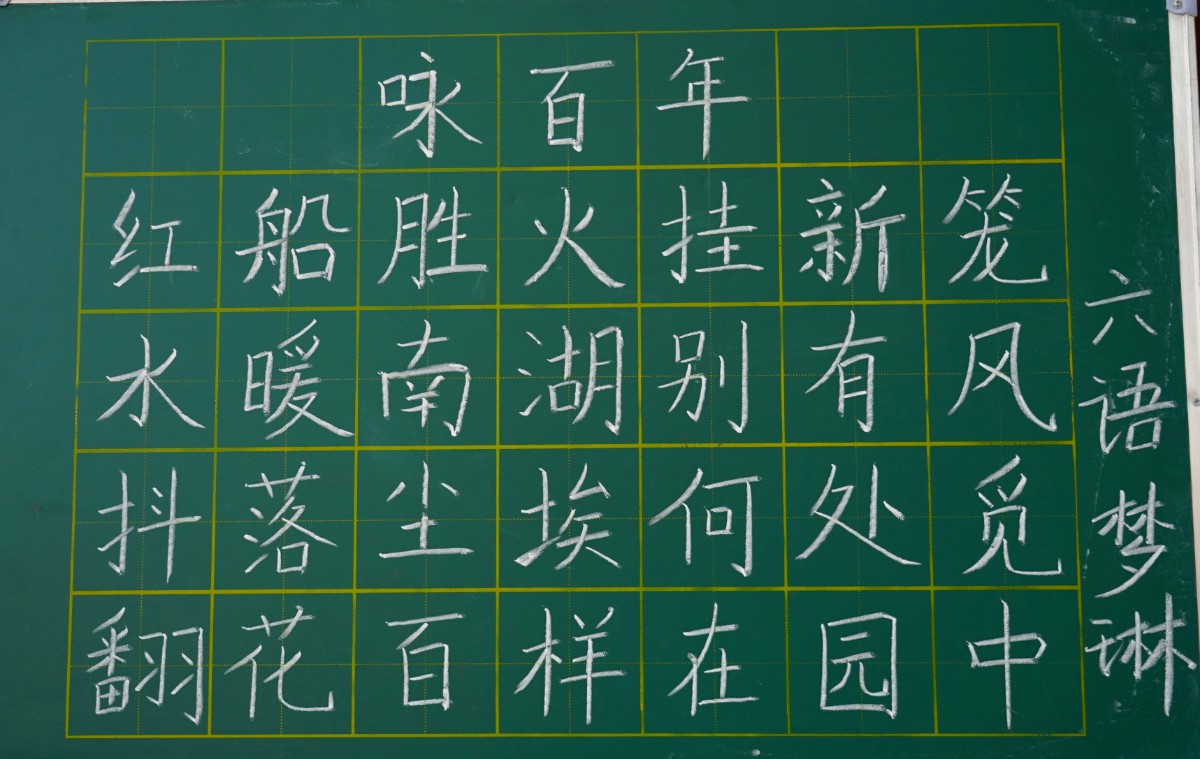 咏百年
红船胜火挂新笼
水暖南湖别有风
抖落尘埃何处觅
翻花百样在园中
六语梦琳